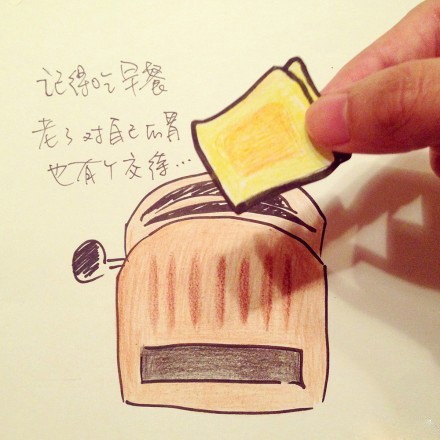 记得吃早餐
老了对自己的胃
也有个交待…